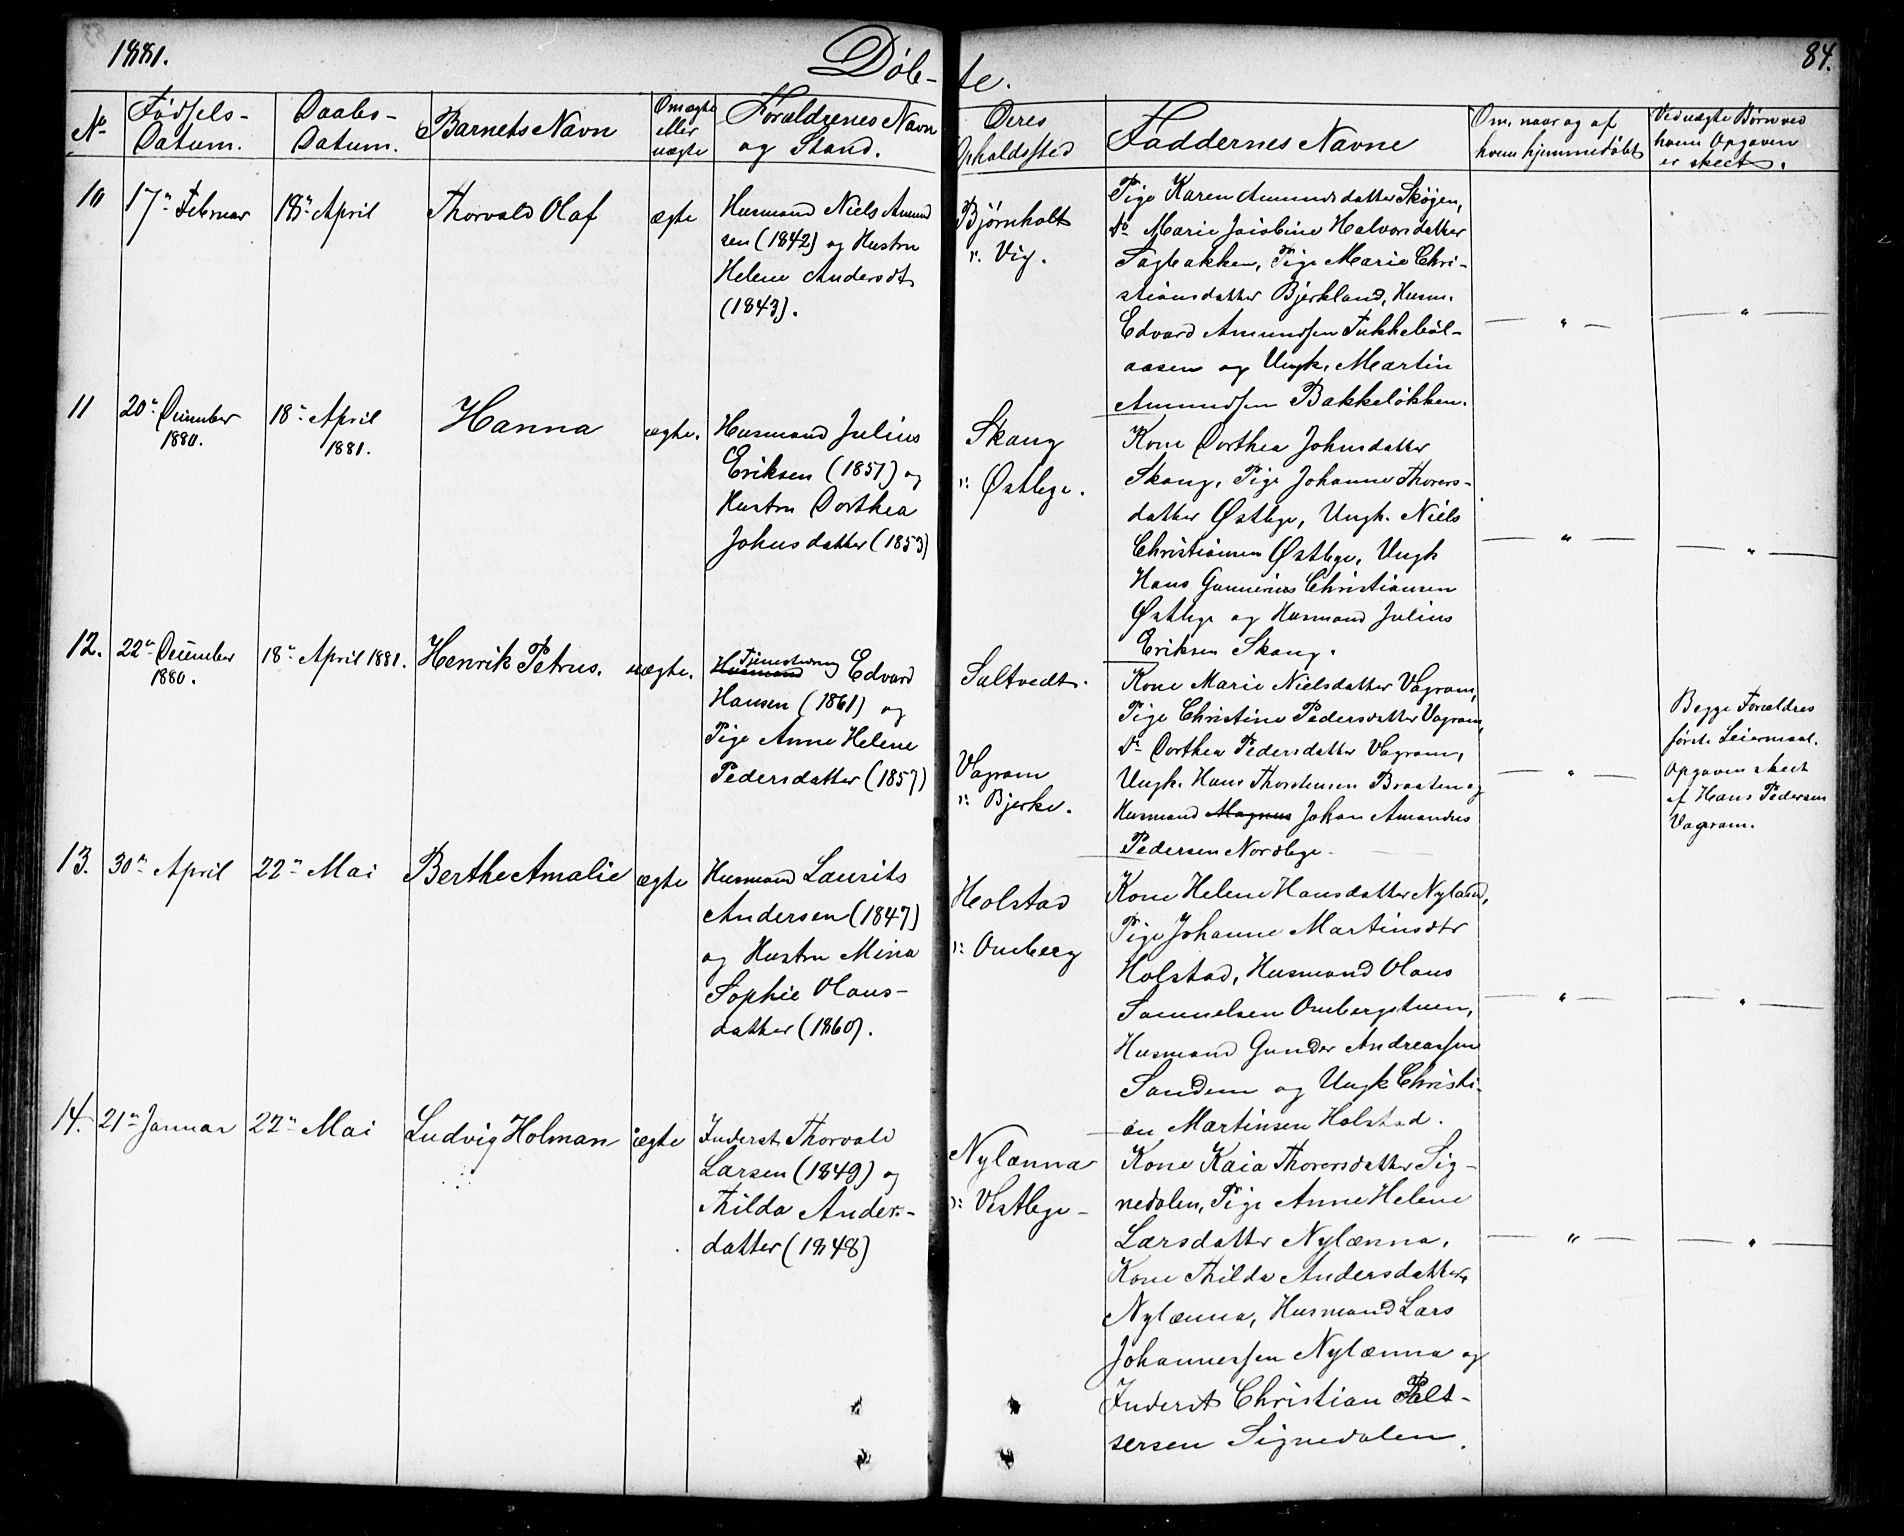 1881.
Døb-
te.
84.
No
Fødsels-
Datum.
Daabs-
Datum.
Barnets Navn
Om ægte
eller
uægte
Forældrenes Navn
og Stand.
Deres
Opholdssted
Faddernes Navne
Om, naar og af
hvem hjemmedøbt
Ved uægte Børn ved
hvem Opgaven
er skeet.
10
17de Februar
18de April
Thorvald Olaf
ægte
Husmand Niels Amund
sen (1842) og Hustru
Helene Andersdt
(1843).
Bjørnholt
u. Vig.
Pige Karen Amundsdatter Skøgen,
do Marie Jacobine Halvorsdatter
Sagbakken, Pige Marie Chri-
stiansdatter Bjerkland, Husm.
Edvard Amundsen Fukkebøl-
aasen og Ungk. Martin
Amundsen Bakkeløkken.
11
20de December
1880.
18de April
1881.
Hanna
ægte.
Husmand Julius
Eriksen (1851) og
Hustru Dorthea
Johnsdatter (1853)
Skang
u. Østbye.
Kone Dorthea Johnsdatter
Skang, Pige Johanne Thorers-
datter Østbye, Ungk. Niels
Christiansen Østbye, Ungk
Hans Gunnerius Christiansen
Østbye og Husmand Julius
Eriksen Skang.
12.
22de December
1880.
18de April 1881.
Henrik Petrus.
uægte.
Tjenestedreng
Husmand Edvard
Hansen (1861) og
Pige Anne Helene
Pedersdatter (1857)
Saltvedt.
Vagram
u. Bjerke.
Kone Marie Nielsdatter Vagram,
Pige Christine Pedersdatter Vagram,
do Dorthea Pedersdatter Vagram,
Ungk. Hans Thorstensen Braaten og
Husmand Magnus Johan Amandus
Pedersen Nordbye.
Begge Forældres
første Leiermaal.
Opgaven skeet
af Hans Pedersen
Vagram.
13.
30te April
22de Mai
Berthe Amalie
ægte
Husmand Laurits
Andersen (1847)
og Hustru Mina
Sophie Olaus-
datter (1860).
Holstad
u. Omberg
Kone Helene Hansdatter Nyland,
Pige Johanne Martinsdtr
Holstad, Husmand Olaus
Samuelsen Ombergstuen,
Husmand Gunder Andreassen
Sandem og Ungk Christi-
an Martinsen Holstad.
14.
21de Januar
22de Mai
Ludvig Holman
ægte
Inderst Thorvald
Larsen (1849) og
Thilda Anders-
datter (1848)
Nylænna
u. Vestbye
Kone Kaia Thorersdatter Sig-
nedalen, Pige Anne Helene
Larsdatter Nylænna,
Kone Thilda Andersdatter,
Nylænna, Husmand Lars
Johannessen Nylænna og
Inderst Christian Palt-
sersen Signedalen.